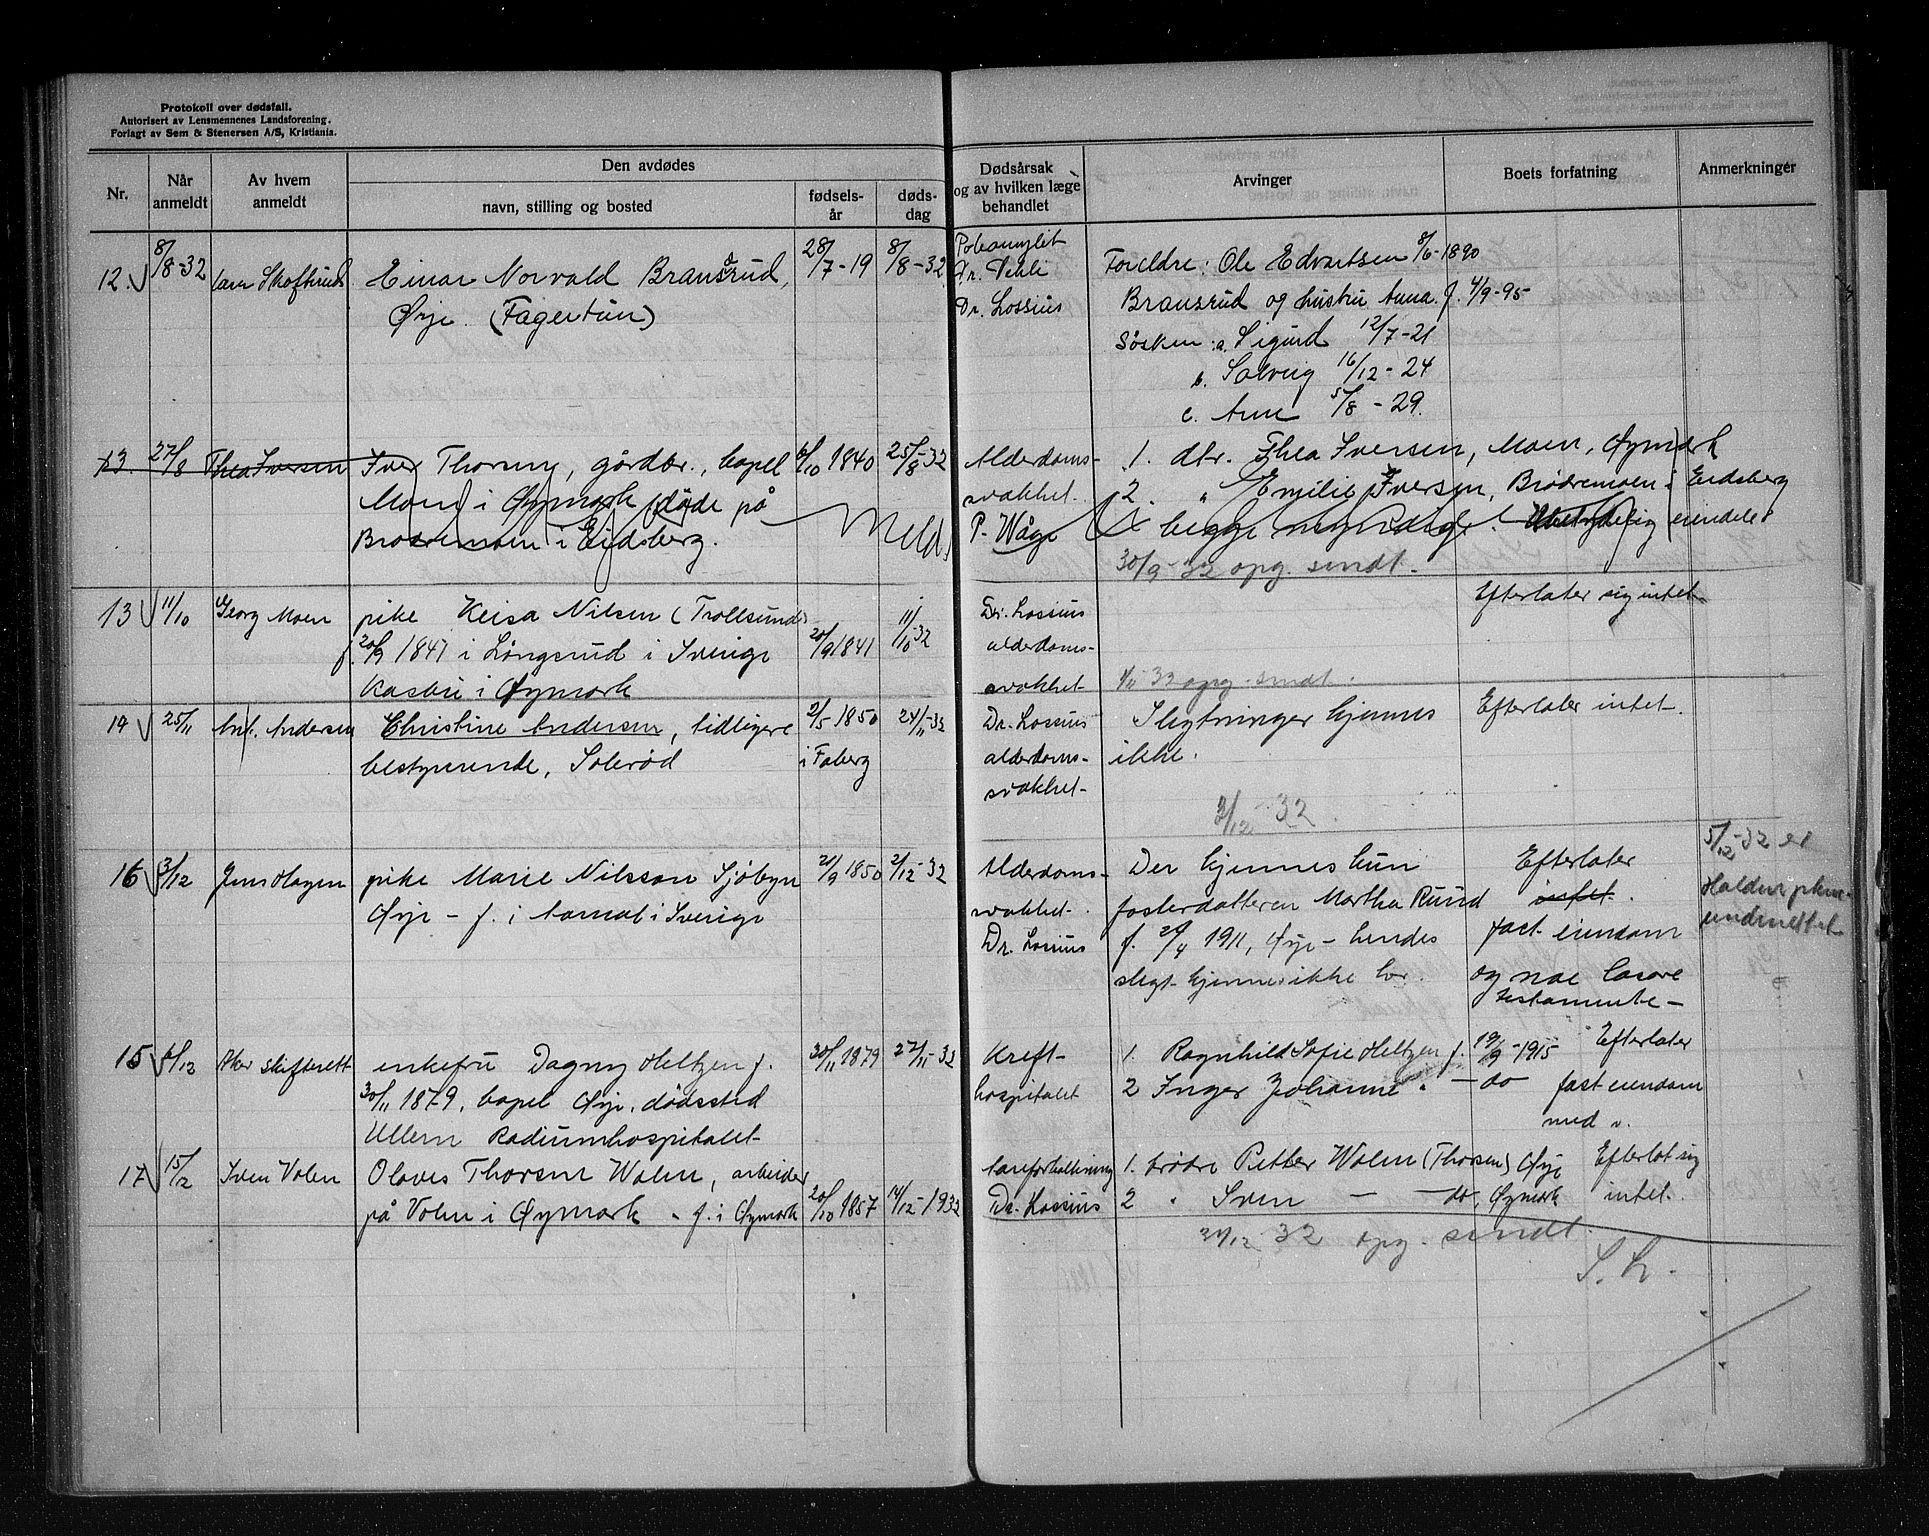 Protokoll over dødsfall.
Autorisert av Lensmennenes Landsforening.
Forlagt av Sem & Stenersen A/S, Kristiania.
Nr.
Når anmeldt
Av hvem anmeldt
Den avdødes
navn, stilling og bosted
fødselsår
dødsdag
Dødsårsak og av hvilken læge behandlet
Arvinger
Boets forfatning
Anmerkninger
12. 8/8-32
Einar Norvald Bransrud, 28/7-19 8/8-32
Øyje. (Fagertun)
Dr. Lossius
Foreldre: Ole Edvartsen 8/6-1890
Bransrud og hustru Anna f. 4/9-95
Søsken: a. Sigurd 12/7-21
b. Solveig 16/12-24
c. Arne 5/8-29.
13. 27/8 Thea Iversen Iver Thorsen, gårdbr., bopel 6/10 1840 25/8-32
Moen i Øymark døde på
Brødremoen i Eidsberg. Meld.
Alderdoms-
svakhet.
P. Wåge
1. dtr. Thea Iversen, Moen, Øymark
2. " Emilie Iversen, Brødremoen i Eidsberg
begge myndige. Ubetydelig eiendeler
30/9-32 opg. sendt.
13 11/10 Georg Moen pike Keisa Nilsen (Trollsund)
f. 20/9 1841 i Långsrud i Sverige 20/9 1841 11/10-32
Kasbu i Øymark
Dr. Lossius
alderdoms-
svakhet-
Efterlater sig intet.
1/11-32 opg. sendt.
14 25/11 Ant. Andersen Christine Andersen, tidligere 2/5 1850 24/11-32
bestyrerinde, Solerød i Faberg
Dr. Lossius
alderdoms-
svakhet-
Slegtninger kjennes
ikke.
Efterlater intet.
2/12-32.
16 3/12 Jens Hagen pike Marie Nilsson Sjöbyn 21/9 1850 2/12-32
Øyje - f. i i Sverige
Alderdoms-
svakhet-
Dr. Lossius
Der kjennes kun
fosterdatteren Martha Ruud
f. 29/4 1911, Øyje - hendes
slegt kjennes ikke her.
Efterlater
intet.
fast eiendom
og noe løsøre
testamente-
5/12-32 er
Halden
underrettet
15 6/12 Aker skifterett enkefru Dagny Heltzen f. 30/11 1879 27/11-32
30/11 1879, bopel Øyje, dødssted
Ullern Radiumhospitalet-
Kreft-
hospitalet
1. Ragnhild Sofie Heltzen f. 19/9-1915
2 Inger Johanne " - do
Efterlater
fast eiendom
med v.
17 15/12 Sven Volen Olaves Thorsen Wolen, arbeider
på Volen i Øymark - f. i Øymark 20/10 1857 14/12-1932
Åreforkalkning
Dr. Lossius
1. brødre Petter Wolen (Thorsen) Øyje
2 " Sven - do, Øymark
Efterlot sig
intet.
21/12 32 opg. sendt.
S. L.